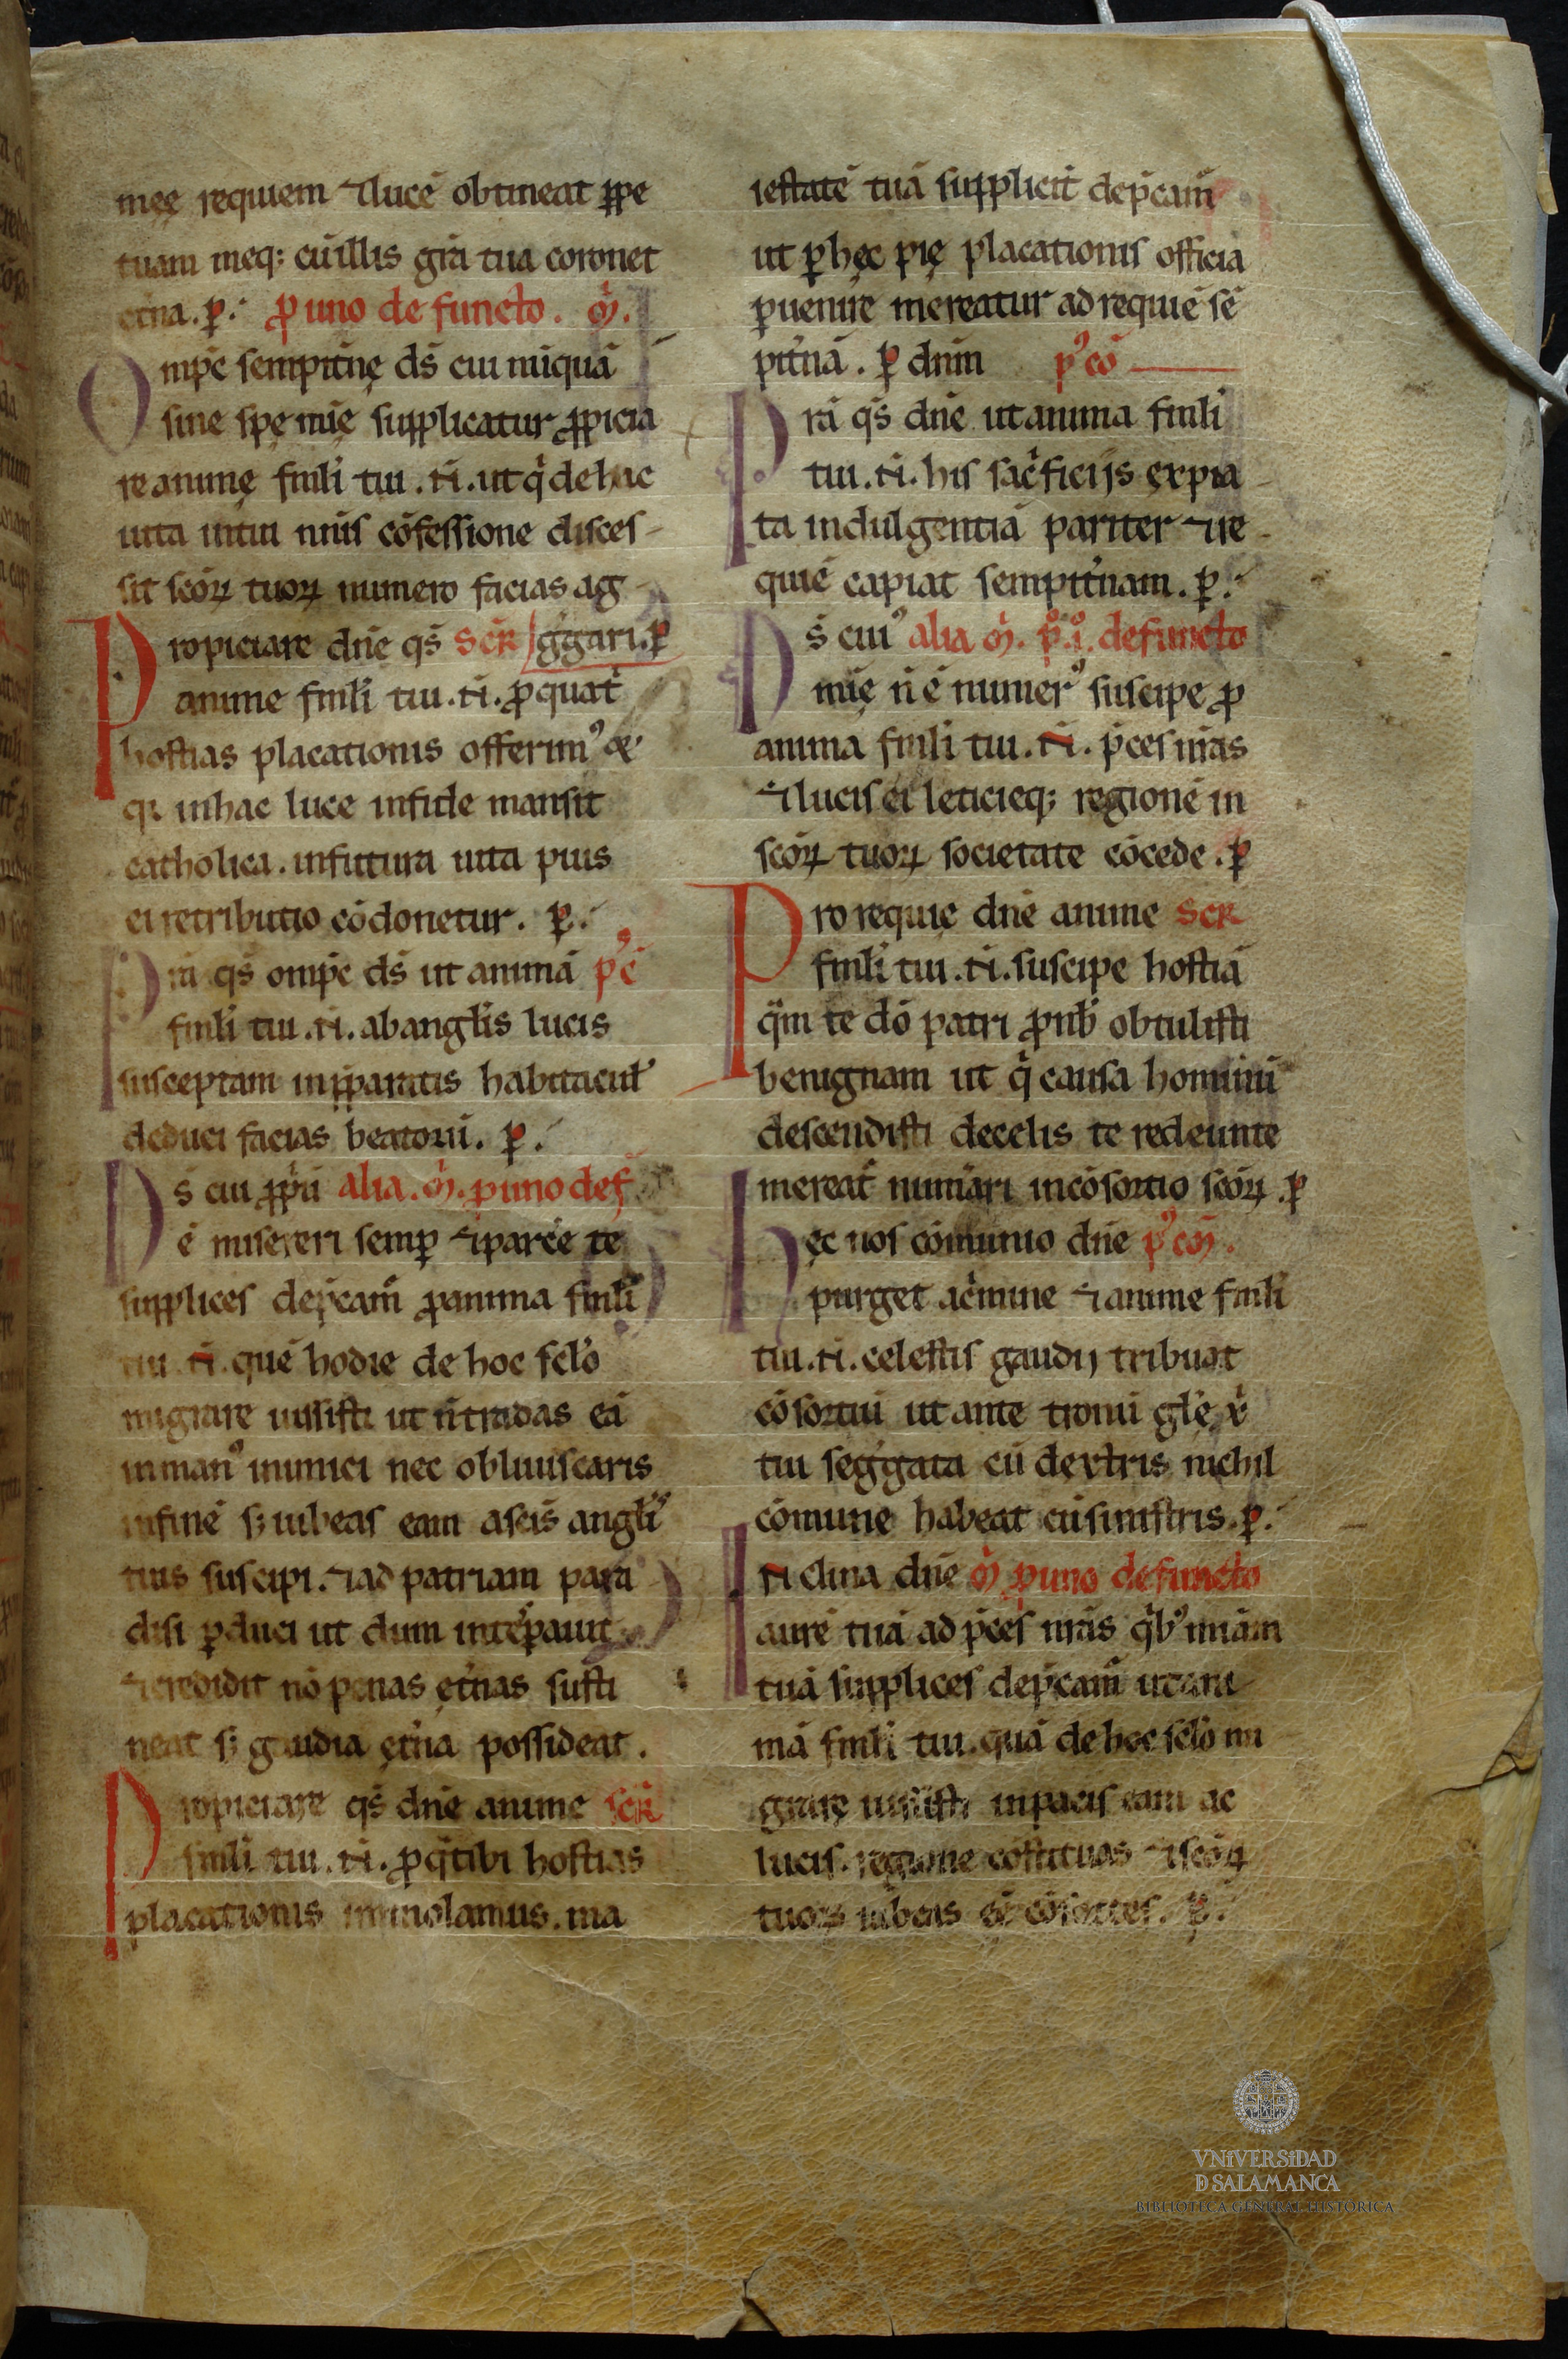 meę requiem ⁊lucē obtineat ꝑpe
tuam meq; cū illis gr̄a tua coronet
et̄na. ꝑ. ꝓ uno defuncto. oꝛ̄.
Omp̄s sempit̄nę ds̄ cui nūquā
sine spę mīę supplicatur ꝓpicia
re animę fml̄i tui .N̄. ut q̄ de hac
uita intui nm̄is cōfessione disces
sit scōꝝ tuoꝝ numero facias ag
gḡari. ꝑ
Propiciare dn̄e qs̄ secr̄
anime fml̄i tui .N̄. ꝓ qua t̄
hostias placationis offerimꝰ
q; in hac luce infide mansit
catholica. infutura uita pius
ei retributio cōdonetur. ꝑ.
Pra qs̄ omp̄s ds̄ ut animā pꝰc̄
fml̄i tui .N̄. ab angl̄is lucis
susceptam in p̄paratis habitacul̄
deduci facias beatorū. ꝑ.
Ds̄ cui ꝓpriū alia. oꝛ̄. ꝓ uno def̄
ē misereri semꝑ ⁊parc̄e te
supplices dep̄camͬ ꝓ anima fml̄i
tui .N̄. quē hodie de hoc scl̄o
migrare iussisti ut n̄ tradas eā
in manꝰ inimici nec obliuiscaris
infinē s; iubeas eam a scīs angl̄i
tuis suscipi. ⁊ad patriam para
disi ꝑduci ut dum inte sꝑauit
⁊credidit nō penas ęt̄nas susti
neat s; gaudia ęt̄na possideat.
Propiciare qs̄ dn̄e anime secr̄
fml̄i tui .N̄. ꝓ q̄ tibi hostias
placationis immolamus. ma
iestatē tuā suppliciт̄ dep̄camͬ
ut ꝑ hęc pię placationis officia
ꝑuenire mereatur ad requiē sē
pit̄nā. ꝑ dn̄m pꝰcō
Pra qs̄ dn̄e ut anima fml̄i
tui .N̄. his sac̄ficijs expia
ta indulgentiā pariter ⁊re
quiē capiat sempit̄nam. ꝑ.
Ds̄ cuiꝰ alia oꝛ̄. ꝓ .ı̊. defuncto
mīę n̄ ē numerꝰ suscipe ꝓ
anima fml̄i tui .N̄. p̄ces nr̄as
⁊lucis ei leticieq; regionē in
scōꝝ tuoꝝ societate cōcede. ꝑ
Pro requię dn̄e anime secr̄
fml̄i tui .N̄. suscipe hostiā
q̄m te dō patri ꝓ nob̄ obtulisti
benignam ut q̄ causa hominū
descendisti decelis te redeunte
mereat̄ num̄ari incōsortio scōꝝ. ꝑ
Hęc nos cōmunio dn̄e pꝰcōm̄.
purget ac̄mine ⁊anime fml̄i
tui .N̄. celestis gaudij tribuat
cōsortiū ut ante tronū gl̄ę xr̄
tui segḡata cū dextris nichil
cōmune habeat cū sinistris. ꝑ.
INclina dn̄e oꝛ̄ ꝓ uno defuncto
aurē tuā ad p̄ces nr̄as q̄bꝰ mīam
tuā supplices dep̄camͬ ut ani
mā fml̄i tui. quā de hoc scl̄o mi
grare iussisti inpacis eam ac
lucis. regione cōstituas ⁊scōꝝ
tuoꝝ iubeas eē cōsortes. ꝑ.
VNiVERSiDAD
D SALAMANCA
BIBLIOTECA GENERAL HISTÓRICA